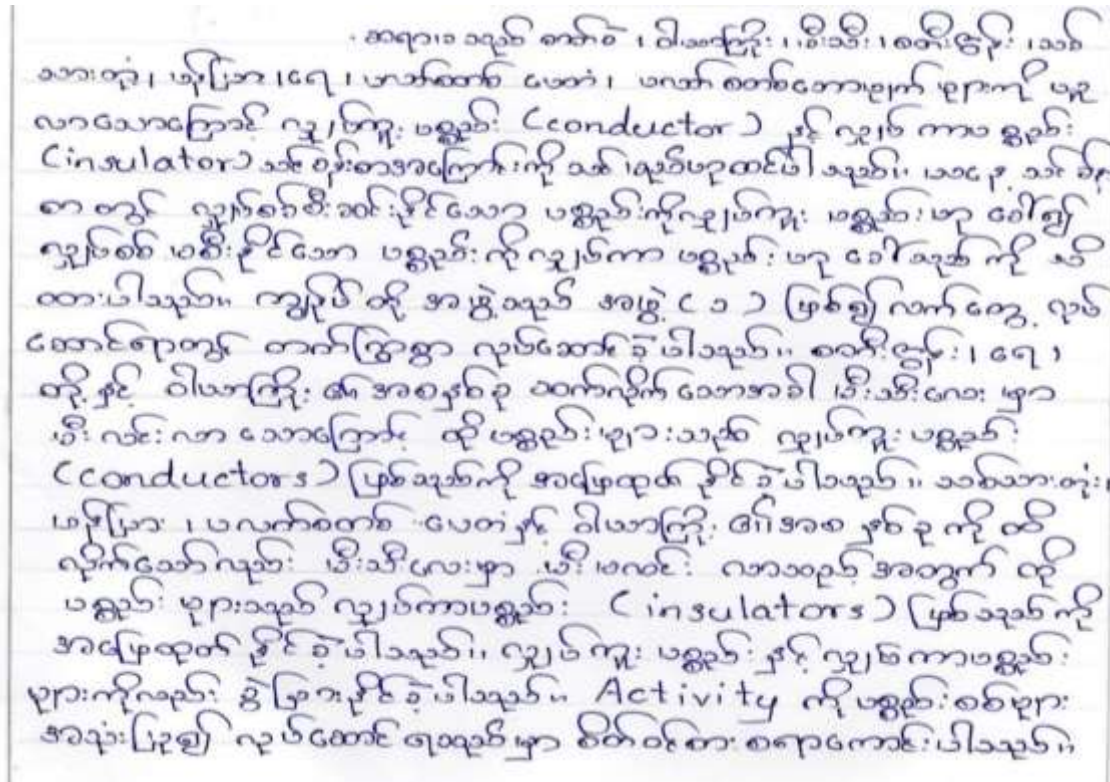 ဆရာမသည် ဓာတ်ခဲ ၊ ဝါယာကြိုး ၊ မီးသီး ၊ စတီးဇွန်း ၊ သစ်
သားတုံး ၊ မှန်ပြား ၊ ရေ ၊ ပလတ်စတစ် ပေတံ ၊ ပလတ် စတစ်ဘောဖျက် များကို ယူ
လာသောကြောင့် လျှပ်ကူး ပစ္စည်း (conductor) နှင့် လျှပ် ကာပစ္စည်း
(insulator) သင်ခန်းစာအကြောင်းကို သင် မည်ဟုထင်ပါသည်။ ယနေ့ သင်ခန်း
စာ တွင် လျှပ်စစ်စီးဆင်းနိုင်သော ပစ္စည်းကိုလျှပ်ကူး ပစ္စည်းဟု ခေါ်၍
လျှပ်စစ် မစီးနိုင်သော ပစ္စည်းကိုလျှပ်ကာ ပစ္စည်း ဟု ခေါ်သည် ကို သိ
ထားပါသည်။ ကျွန်ုပ် တို့ အဖွဲ့သည် အဖွဲ့ (၁) ဖြစ်၍ လက်တွေ့ လုပ်
ဆောင်ရာတွင် တက်ကြွစွာ လုပ်ဆောင် ခဲ့ပါသည်။ စတီးဇွန်း ၊ ရေ ၊
တို့ နှင့် ဝါယာကြိုး ၏ အစနှစ်ခု ဆက်လိုက် သောအခါ မီးသီးလေး မှာ
မီး လင်း လာ သောကြောင့် ထိုပစ္စည်းများသည် လျှပ်ကူး ပစ္စည်း
(conductors) ဖြစ်သည်ကို အဖြေထုတ် နိုင်ခဲ့ပါသည်။ သစ်သားတုံး ၊
မှန်ပြား ၊ ပလက်စတစ် ပေတံနှင့် ဝါယာကြိုး ၏အစ နှစ်ခု ကို ထိ
လိုက်သော်လည်း မီးသီးလေးမှာ မီး မလင်း လာသည့်အတွက် ထို
ပစ္စည်း များသည် လျှပ်ကာပစ္စည်း (insulators) ဖြစ်သည်ကို
အဖြေထုတ် နိုင်ခဲ့ပါသည်။ လျှပ်ကူး ပစ္စည်း နှင့် လျှပ်ကာပစ္စည်း
များကိုလည်း ခွဲခြားနိုင်ခဲ့ပါသည်။ Activity ကို ပစ္စည်းစစ်များ
အသုံးပြု၍ လုပ်ဆောင် ရသည်မှာ စိတ်ဝင်စားစရာကောင်းပါသည်။